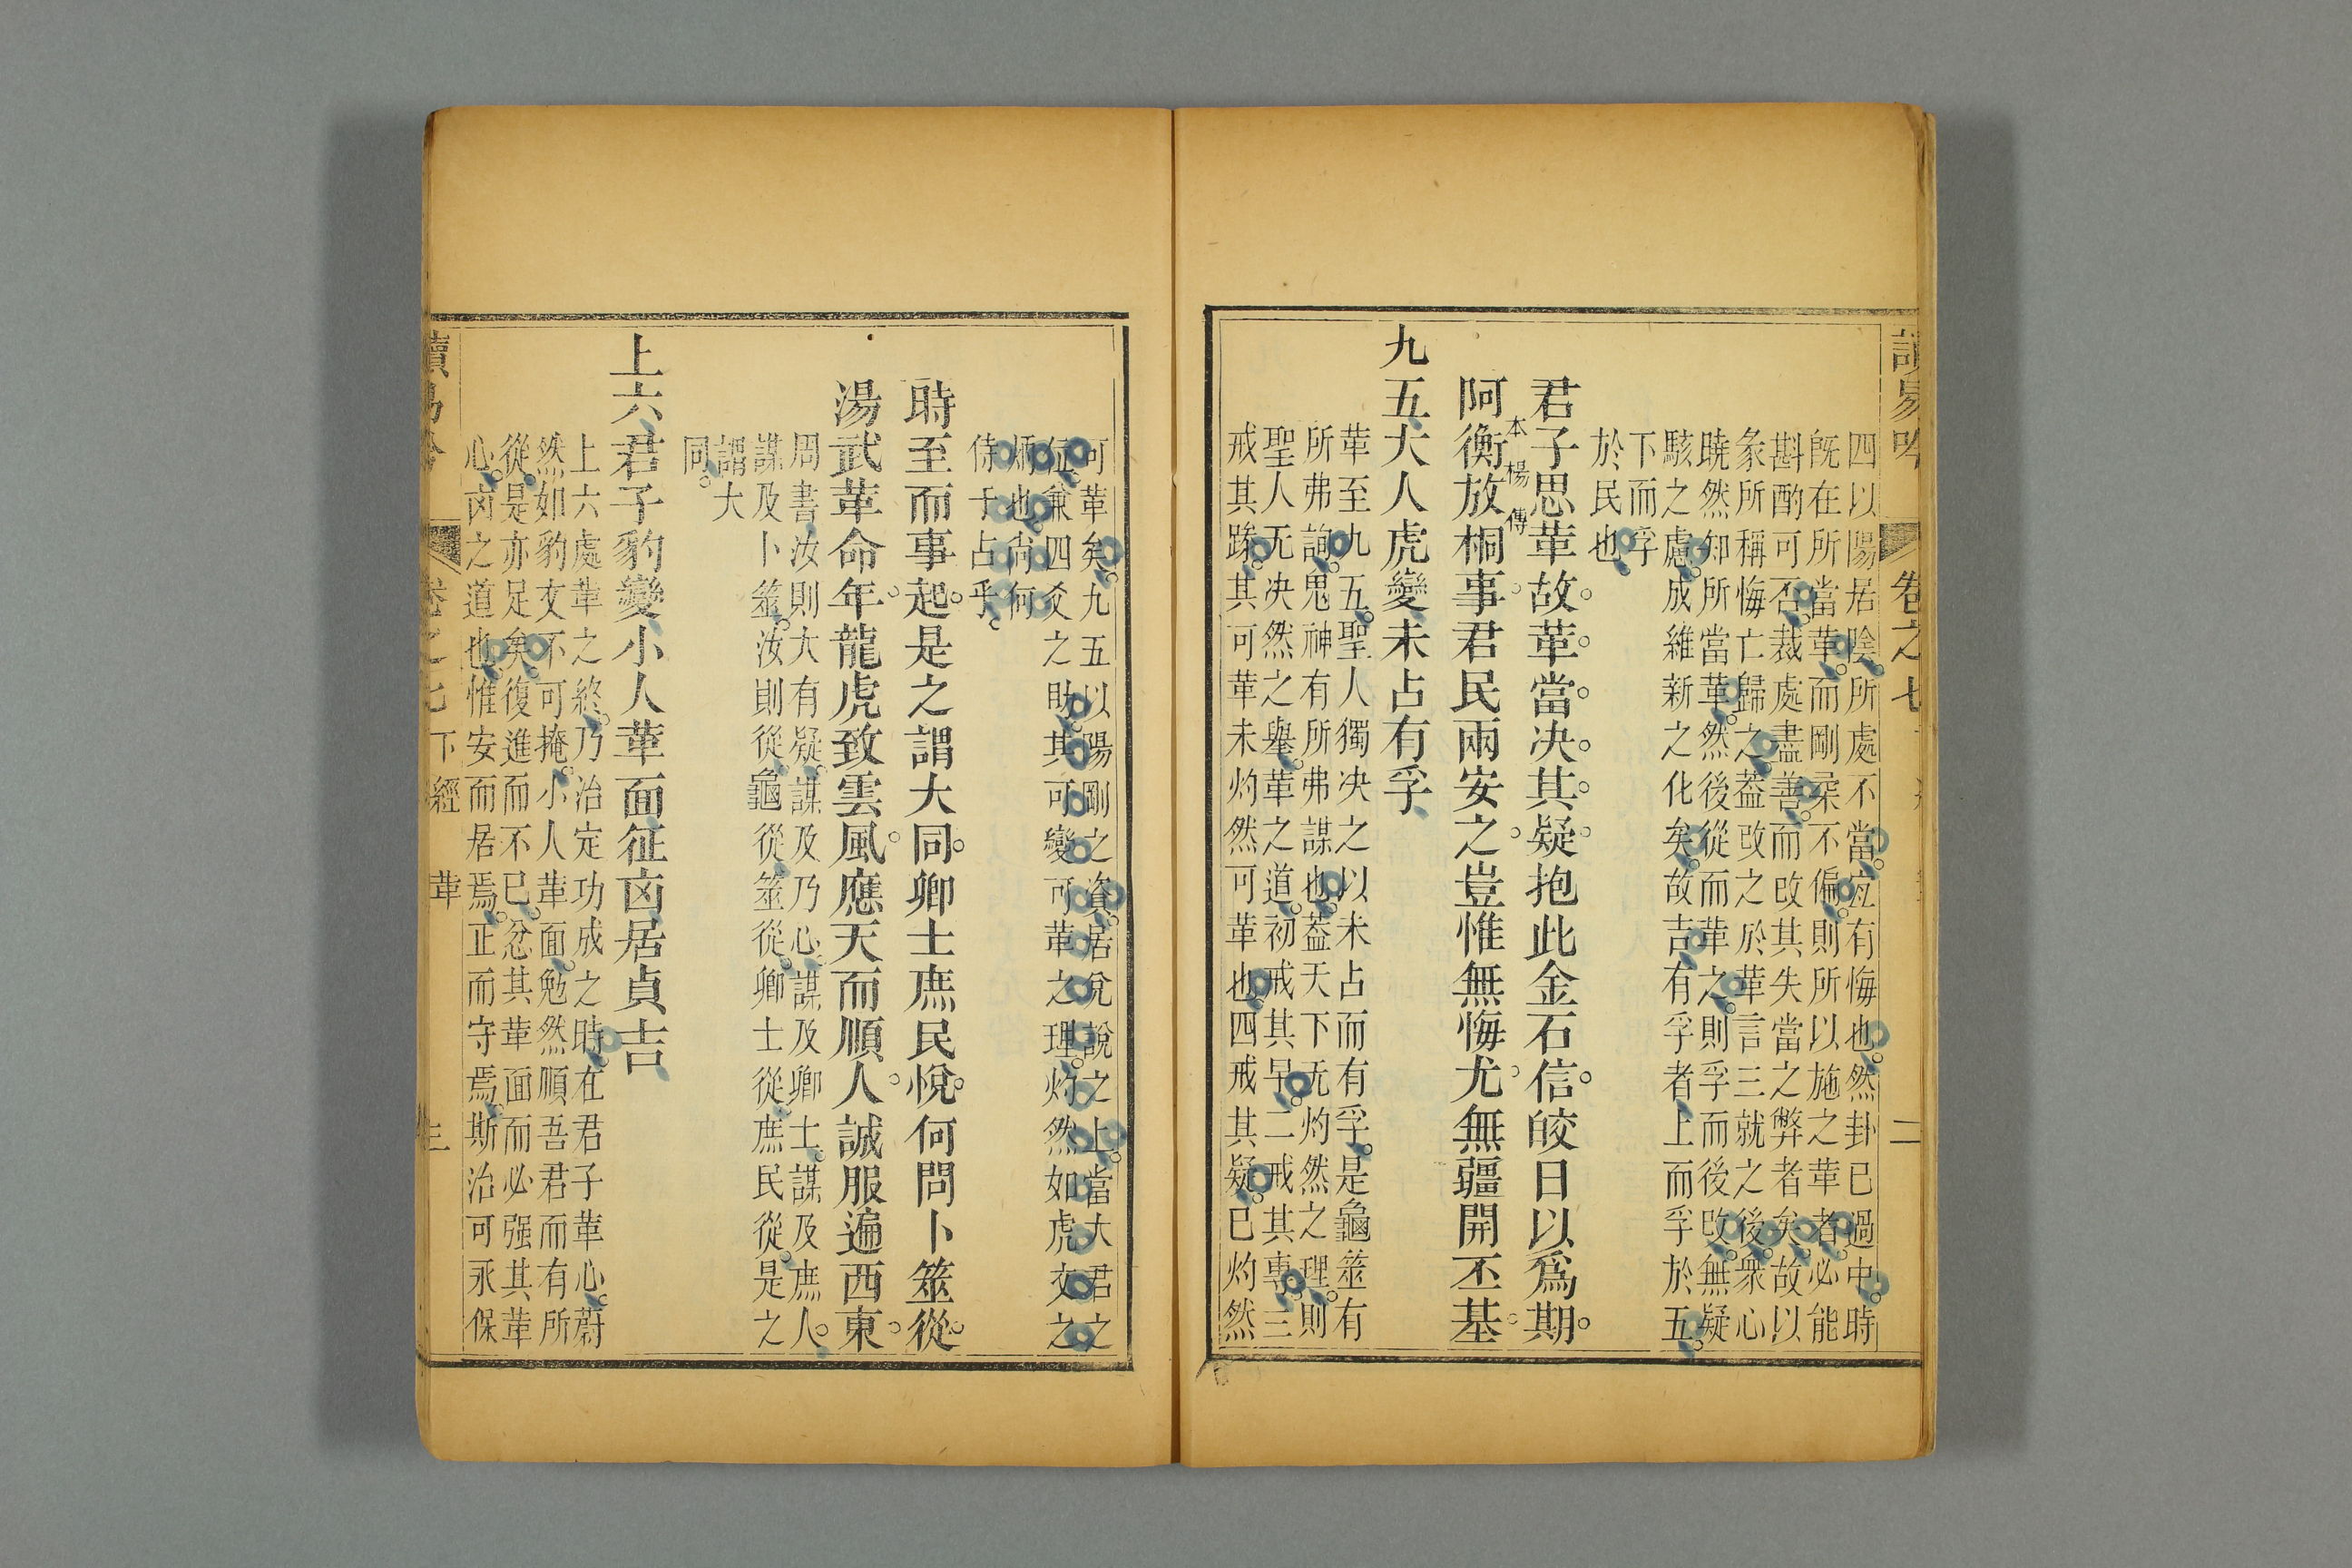 讀易吟 卷之七
四以陽居陰所處不當宜有悔也然卦已過中時
既在所當革而剛柔不偏則所以施之革者必能
斟酌可否裁處盡善而改其失當之弊者矣故以
彖所稱悔亡歸之葢改之於革言三就之後衆心
曉然知所當革然後從而革之則孚而後改無疑
駭之慮成維新之化矣故吉有孚者上而孚於五
下而孚
於民也
君子思革故革當决其疑抱此金石信皎日以爲期
本楊傳
阿衡放桐事君民兩安之豈惟無悔尤無疆開丕基
九五大人虎變未占有孚
革至九五聖人獨决之以未占而有孚是龜筮有
所弗詢鬼神有所弗謀也葢天下无灼然之理則
聖人无决然之舉革之道初戒其早二戒其專三
戒其躁其可革未灼然可革也四戒其疑已灼然
可革矣九五以陽剛之資居兌說之上當大君之
位兼四爻之助其可變可革之理灼然如虎文之
炳也尚何
待于占乎
時至而事起是之謂大同卿士庶民悅何問卜筮從
湯武革命年龍虎致雲風應天而順人誠服遍西東
周書汝則大有疑謀及乃心謀及卿士謀及庶人
謀及卜筮汝則從龜從筮從卿士從庶民從是之
謂大
同
上六君子豹變小人革面征凶居貞吉
上六處革之終乃治定功成之時在君子革心蔚
然如豹文不可掩小人革面勉然順吾君而有所
從是亦足矣復進而不已忿其革面而必强其革
心凶之道也惟安而居焉正而守焉斯治可永保
讀易吟 卷之七 下經 革